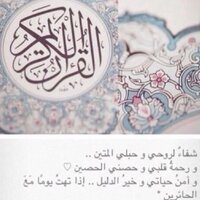 القرآن الكريم
شفاءٌ لروحي و حبلي المتين ..
و رحمةُ قلبي و حصني الحصين ♡
و أمنُ حياتي و خيرُ الدليل .. إذا تهتُ يومًا مَعَ
الحائرين *